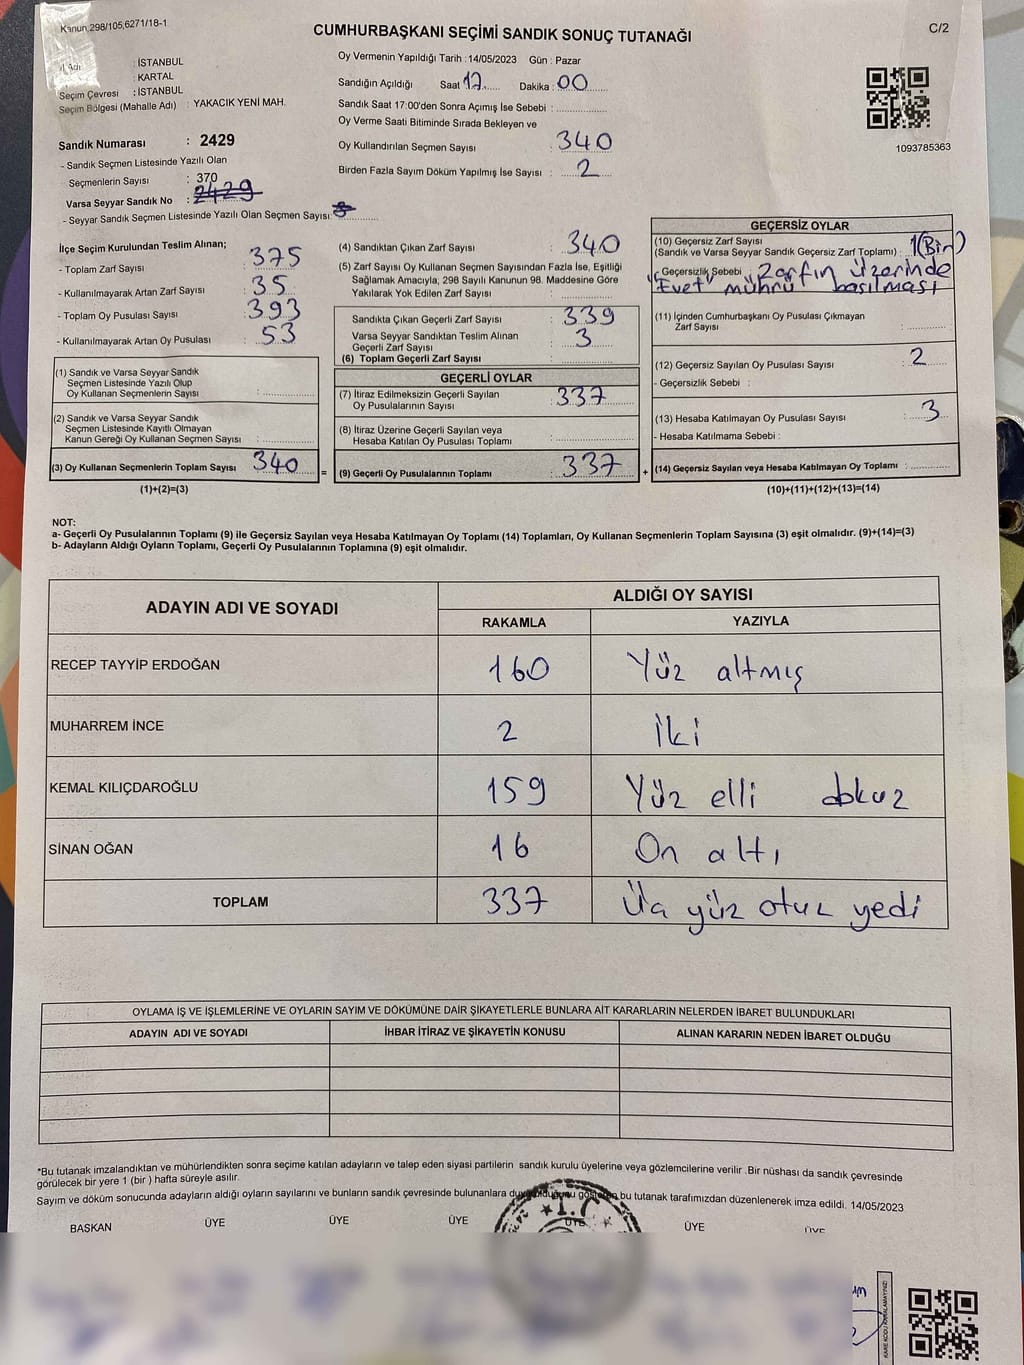 Kanun,298/105,6271/18-1
C/2
CUMHURBAŞKANI SEÇİMİ SANDIK SONUÇ TUTANAĞI
: İSTANBUL
: KARTAL
Seçim Çevresi : İSTANBUL
Seçim Bölgesi (Mahalle Adı) : YAKACIK YENİ MAH.
Sandık Numarası : 2429
- Sandık Seçmen Listesinde Yazılı Olan
Seçmenlerin Sayısı : 370
Varsa Seyyar Sandık No : 2429
- Seyyar Sandık Seçmen Listesinde Yazılı Olan Seçmen Sayısı
Oy Vermenin Yapıldığı Tarih : 14/05/2023 Gün : Pazar
Sandığın Açıldığı Saat 17 Dakika : 00
Sandık Saat 17:00'den Sonra Açımış İse Sebebi :
Oy Verme Saati Bitiminde Sırada Bekleyen ve
Oy Kullandırılan Seçmen Sayısı : 340
Birden Fazla Sayım Döküm Yapılmış İse Sayısı : 2
1093785363
İlçe Seçim Kurulundan Teslim Alınan;
- Toplam Zarf Sayısı : 375
- Kullanılmayarak Artan Zarf Sayısı : 35
- Toplam Oy Pusulası Sayısı : 393
- Kullanılmayarak Artan Oy Pusulası : 53
(1) Sandık ve Varsa Seyyar Sandık
Seçmen Listesinde Yazılı Olup
Oy Kullanan Seçmenlerin Sayısı :
(2) Sandık ve Varsa Seyyar Sandık
Seçmen Listesinde Kayıtlı Olmayan
Kanun Gereği Oy Kullanan Seçmen Sayısı :
(3) Oy Kullanan Seçmenlerin Toplam Sayısı : 340 =
(1)+(2)=(3)
(4) Sandıktan Çıkan Zarf Sayısı : 340
(5) Zarf Sayısı Oy Kullanan Seçmen Sayısından Fazla İse, Eşitliği
Sağlamak Amacıyla, 298 Sayılı Kanunun 98. Maddesine Göre
Yakılarak Yok Edilen Zarf Sayısı :
Sandıkta Çıkan Geçerli Zarf Sayısı : 339
Varsa Seyyar Sandıktan Teslim Alınan
Geçerli Zarf Sayısı : 3
(6) Toplam Geçerli Zarf Sayısı :
GEÇERLİ OYLAR
(7) İtiraz Edilmeksizin Geçerli Sayılan
Oy Pusulalarının Sayısı : 337
(8) İtiraz Üzerine Geçerli Sayılan veya
Hesaba Katılan Oy Pusulası Toplamı :
(9) Geçerli Oy Pusulalarının Toplamı : 337 +
GEÇERSİZ OYLAR
(10) Geçersiz Zarf Sayısı
(Sandık ve Varsa Seyyar Sandık Geçersiz Zarf Toplamı) : 1(Bir)
- Geçersizlik Sebebi : Zarfın Üzerinde
"Evet" mührü basılması
(11) İçinden Cumhurbaşkanı Oy Pusulası Çıkmayan
Zarf Sayısı :
(12) Geçersiz Sayılan Oy Pusulası Sayısı : 2
- Geçersizlik Sebebi :
(13) Hesaba Katılmayan Oy Pusulası Sayısı : 3
- Hesaba Katılmama Sebebi :
(14) Geçersiz Sayılan veya Hesaba Katılmayan Oy Toplamı :
(10)+(11)+(12)+(13)=(14)
NOT:
a- Geçerli Oy Pusulalarının Toplamı (9) ile Geçersiz Sayılan veya Hesaba Katılmayan Oy Toplamı (14) Toplamları, Oy Kullanan Seçmenlerin Toplam Sayısına (3) eşit olmalıdır. (9)+(14)=(3)
b- Adayların Aldığı Oyların Toplamı, Geçerli Oy Pusulalarının Toplamına (9) eşit olmalıdır.
ADAYIN ADI VE SOYADI
ALDIĞI OY SAYISI
RAKAMLA YAZIYLA
RECEP TAYYİP ERDOĞAN 160 Yüz altmış
MUHARREM İNCE 2 İki
KEMAL KILIÇDAROĞLU 159 Yüz elli dokuz
SİNAN OĞAN 16 On altı
TOPLAM 337 Üç yüz otuz yedi
OYLAMA İŞ VE İŞLEMLERİNE VE OYLARIN SAYIM VE DÖKÜMÜNE DAİR ŞİKAYETLERLE BUNLARA AİT KARARLARIN NELERDEN İBARET BULUNDUKLARI
ADAYIN ADI VE SOYADI İHBAR İTİRAZ VE ŞİKAYETİN KONUSU ALINAN KARARIN NEDEN İBARET OLDUĞU
*Bu tutanak imzalandıktan ve mühürlendikten sonra seçime katılan adayların ve talep eden siyasi partilerin sandık kurulu üyelerine veya gözlemcilerine verilir .Bir nüshası da sandık çevresinde
görülecek bir yere 1 (bir ) hafta süreyle asılır.
Sayım ve döküm sonucunda adayların aldığı oyların sayılarını ve bunların sandık çevresinde bulunanlara duyurulduğunu gösteren bu tutanak tarafımızdan düzenlenerek imza edildi. 14/05/2023
BAŞKAN ÜYE ÜYE ÜYE ÜYE ÜYE ÜYE
T.C.